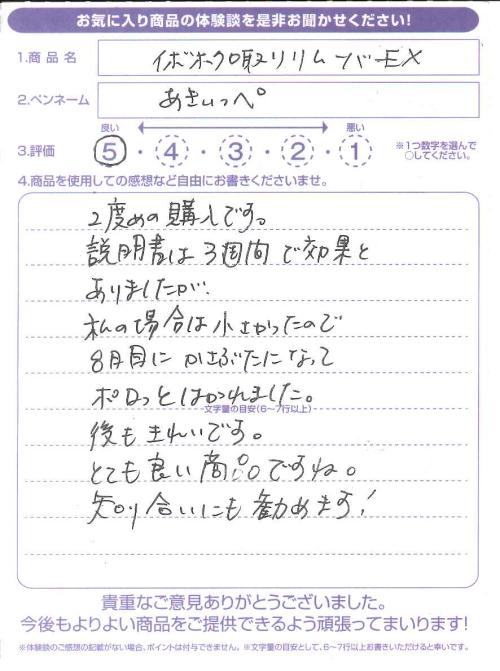 お気に入り商品の体験談を是非お聞かせください!
1.商品名 イボホクロ取りリムーバーEX
2.ペンネーム あきぃっぺ
良い 悪い
3.評価 5・4・3・2・1 ※1つ数字を選んで
○してください。
4.商品を使用しての感想など自由にお書きくださいませ。
2度めの購入です。
説明書は3週間で効果と
ありましたが、
私の場合は小さかったので
8日目にかさぶたになって
ポロっとはがれました。
文字量の目安(6〜7行以上)
後もきれいです。
とても良い商品ですね。
知り合いにも勧めます!
貴重なご意見ありがとうございました。
今後もよりよい商品をご提供できるよう頑張ってまいります!
※体験談のご感想の記載がない場合、ポイントは付与できません。※文字量の目安として、6〜7行以上お書きいただけると幸いです。